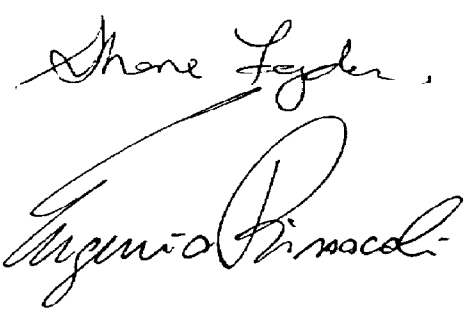 Shane Fegder.
Eugenio Pirascoli